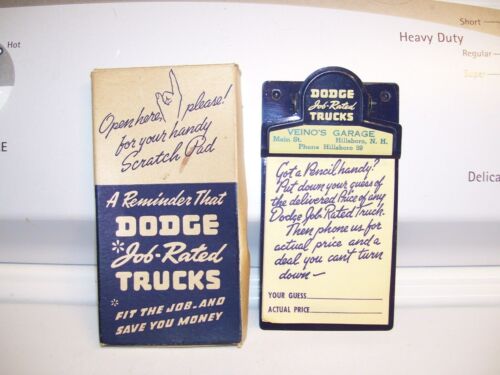 Hot
CE
Short
Heavy Duty
Regular
Super
Delica
Open here, please!
for your handy
Scratch Pad
A Reminder That
DODGE
*Job-Rated
TRUCKS
*FIT THE JOB-AND
SAVE YOU MONEY
DODGE
Job-Rated
TRUCKS
VEINO'S GARAGE
Main St. Hillsboro, N. H.
Phone Hillsboro 59
Got a Pencil handy?
Put down your guess of
the delivered Price of any
Dodge Job-Rated Truck.
Then phone us for
actual price and a
deal you can't turn
down—
YOUR GUESS
ACTUAL PRICE